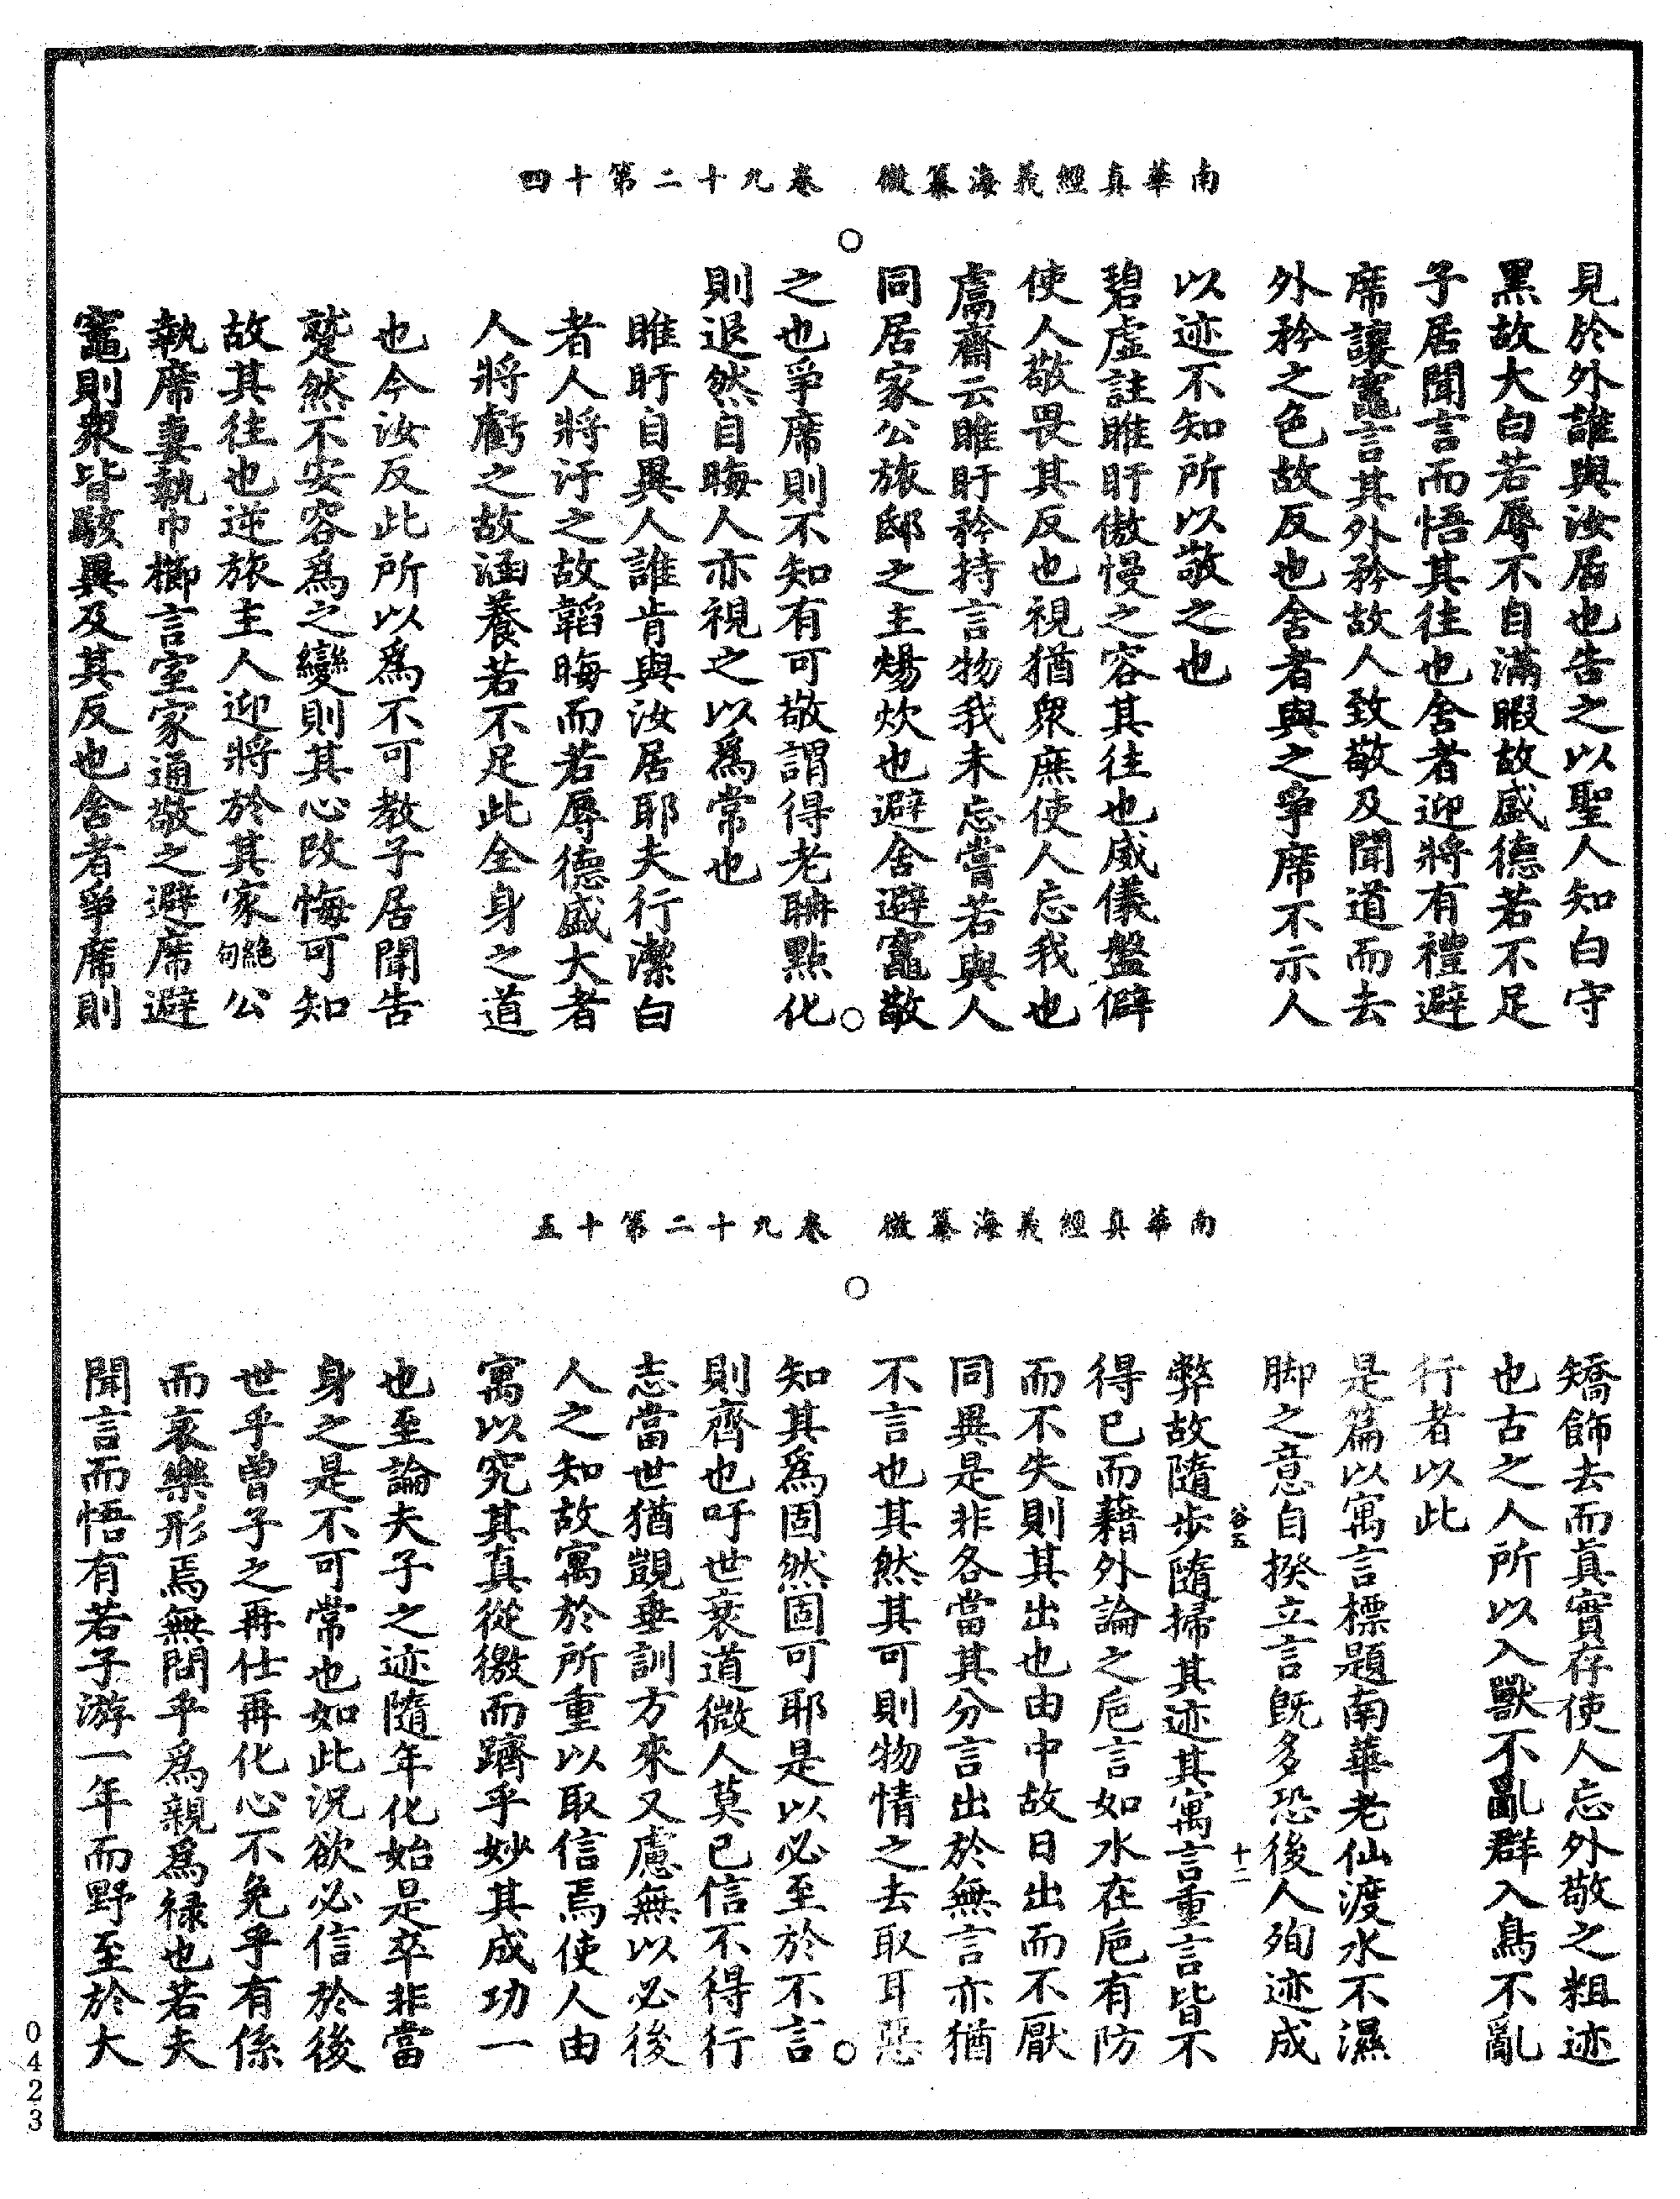 南華真經義海纂微　卷九十二第十四
見於外誰與汝居也告之以聖人知白守
黑故大白若辱不自滿暇故盛德若不足
子居聞言而悟其往也舍者迎將有禮避
席讓竈言其外矜故人致敬及聞道而去
外矜之色故反也舍者與之爭席不示人
以迹不知所以敬之也
碧虛註睢盱傲慢之容其往也威儀盤僻
使人敬畏其反也視猶衆庶使人忘我也
鬳齋云睢盱矜持言物我未忘嘗若與人
同居家公旅邸之主煬炊也避舍避竈敬
之也爭席則不知有可敬謂得老聃點化
則退然自晦人亦視之以爲常也
睢盱自異人誰肯與汝居耶夫行潔白
者人將汙之故韜晦而若辱德盛大者
人將虧之故涵養若不足此全身之道
也今汝反此所以爲不可教子居聞告
蹵然不安容爲之變則其心改悔可知
故其往也逆旅主人迎將於其家絕句公
執席妻執巾櫛言室家通敬之避席避
竈則衆皆駭異及其反也舍者爭席則
南華真經義海纂微　卷九十二第十五
矯飾去而眞實存使人忘外敬之粗迹
也古之人所以入獸不亂群入鳥不亂
行者以此
是篇以寓言標題南華老仙渡水不濕
脚之意自揆立言旣多恐後人殉迹成
谷五　十二
弊故隨步隨掃其迹其寓言重言皆不
得已而藉外論之巵言如水在巵有防
而不失則其出也由中故日出而不厭
同異是非各當其分言出於無言亦猶
不言也其然其可則物情之去取耳惡
知其爲固然固可耶是以必至於不言
則齊也吁世衰道微人莫已信不得行
志當世猶覬垂訓方來又慮無以必後
人之知故寓於所重以取信焉使人由
寓以究其真從徼而躋乎妙其成功一
也至論夫子之迹隨年化始是卒非當
身之是不可常也如此況欲必信於後
世乎曾子之再仕再化心不免乎有係
而哀樂形焉無間乎爲親爲祿也若夫
聞言而悟有若子游一年而野至於大
0423